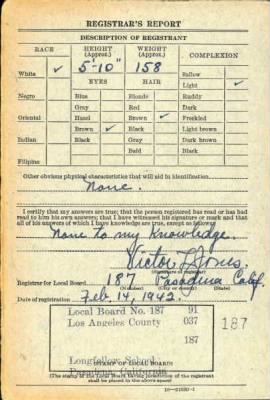 REGISTRAR'S REPORT
DESCRIPTION OF REGISTRANT
RACE HEIGHT (Approx.) WEIGHT (Approx.) COMPLEXION
White ✓ 5'-10" 158 Sallow
EYES HAIR Light ✓
Negro Blue Blonde Ruddy
Gray Red Dark
Oriental Hazel Brown ✓ Freckled
Brown ✓ Black Light brown
Indian Black Gray Dark brown
Bald Black
Filipino
Other obvious physical characteristics that will aid in identification
None.
I certify that my answers are true; that the person registered has read or has had
read to him his own answers; that I have witnessed his signature or mark and that
all of his answers of which I have knowledge are true, except as follows:
None to my knowledge.
Victor L. Jones.
(Signature of registrar)
Registrar for Local Board 187 Pasadena Calif.
(Number) (City or county) (State)
Date of registration Feb. 14, 1942.
Local Board No. 187 91
Los Angeles County 037
187
187
Longfellow School
(STAMP OF LOCAL BOARD)
Pasadena, California
(The stamp of the Local Board having jurisdiction of the registrant
shall be placed in the above space)